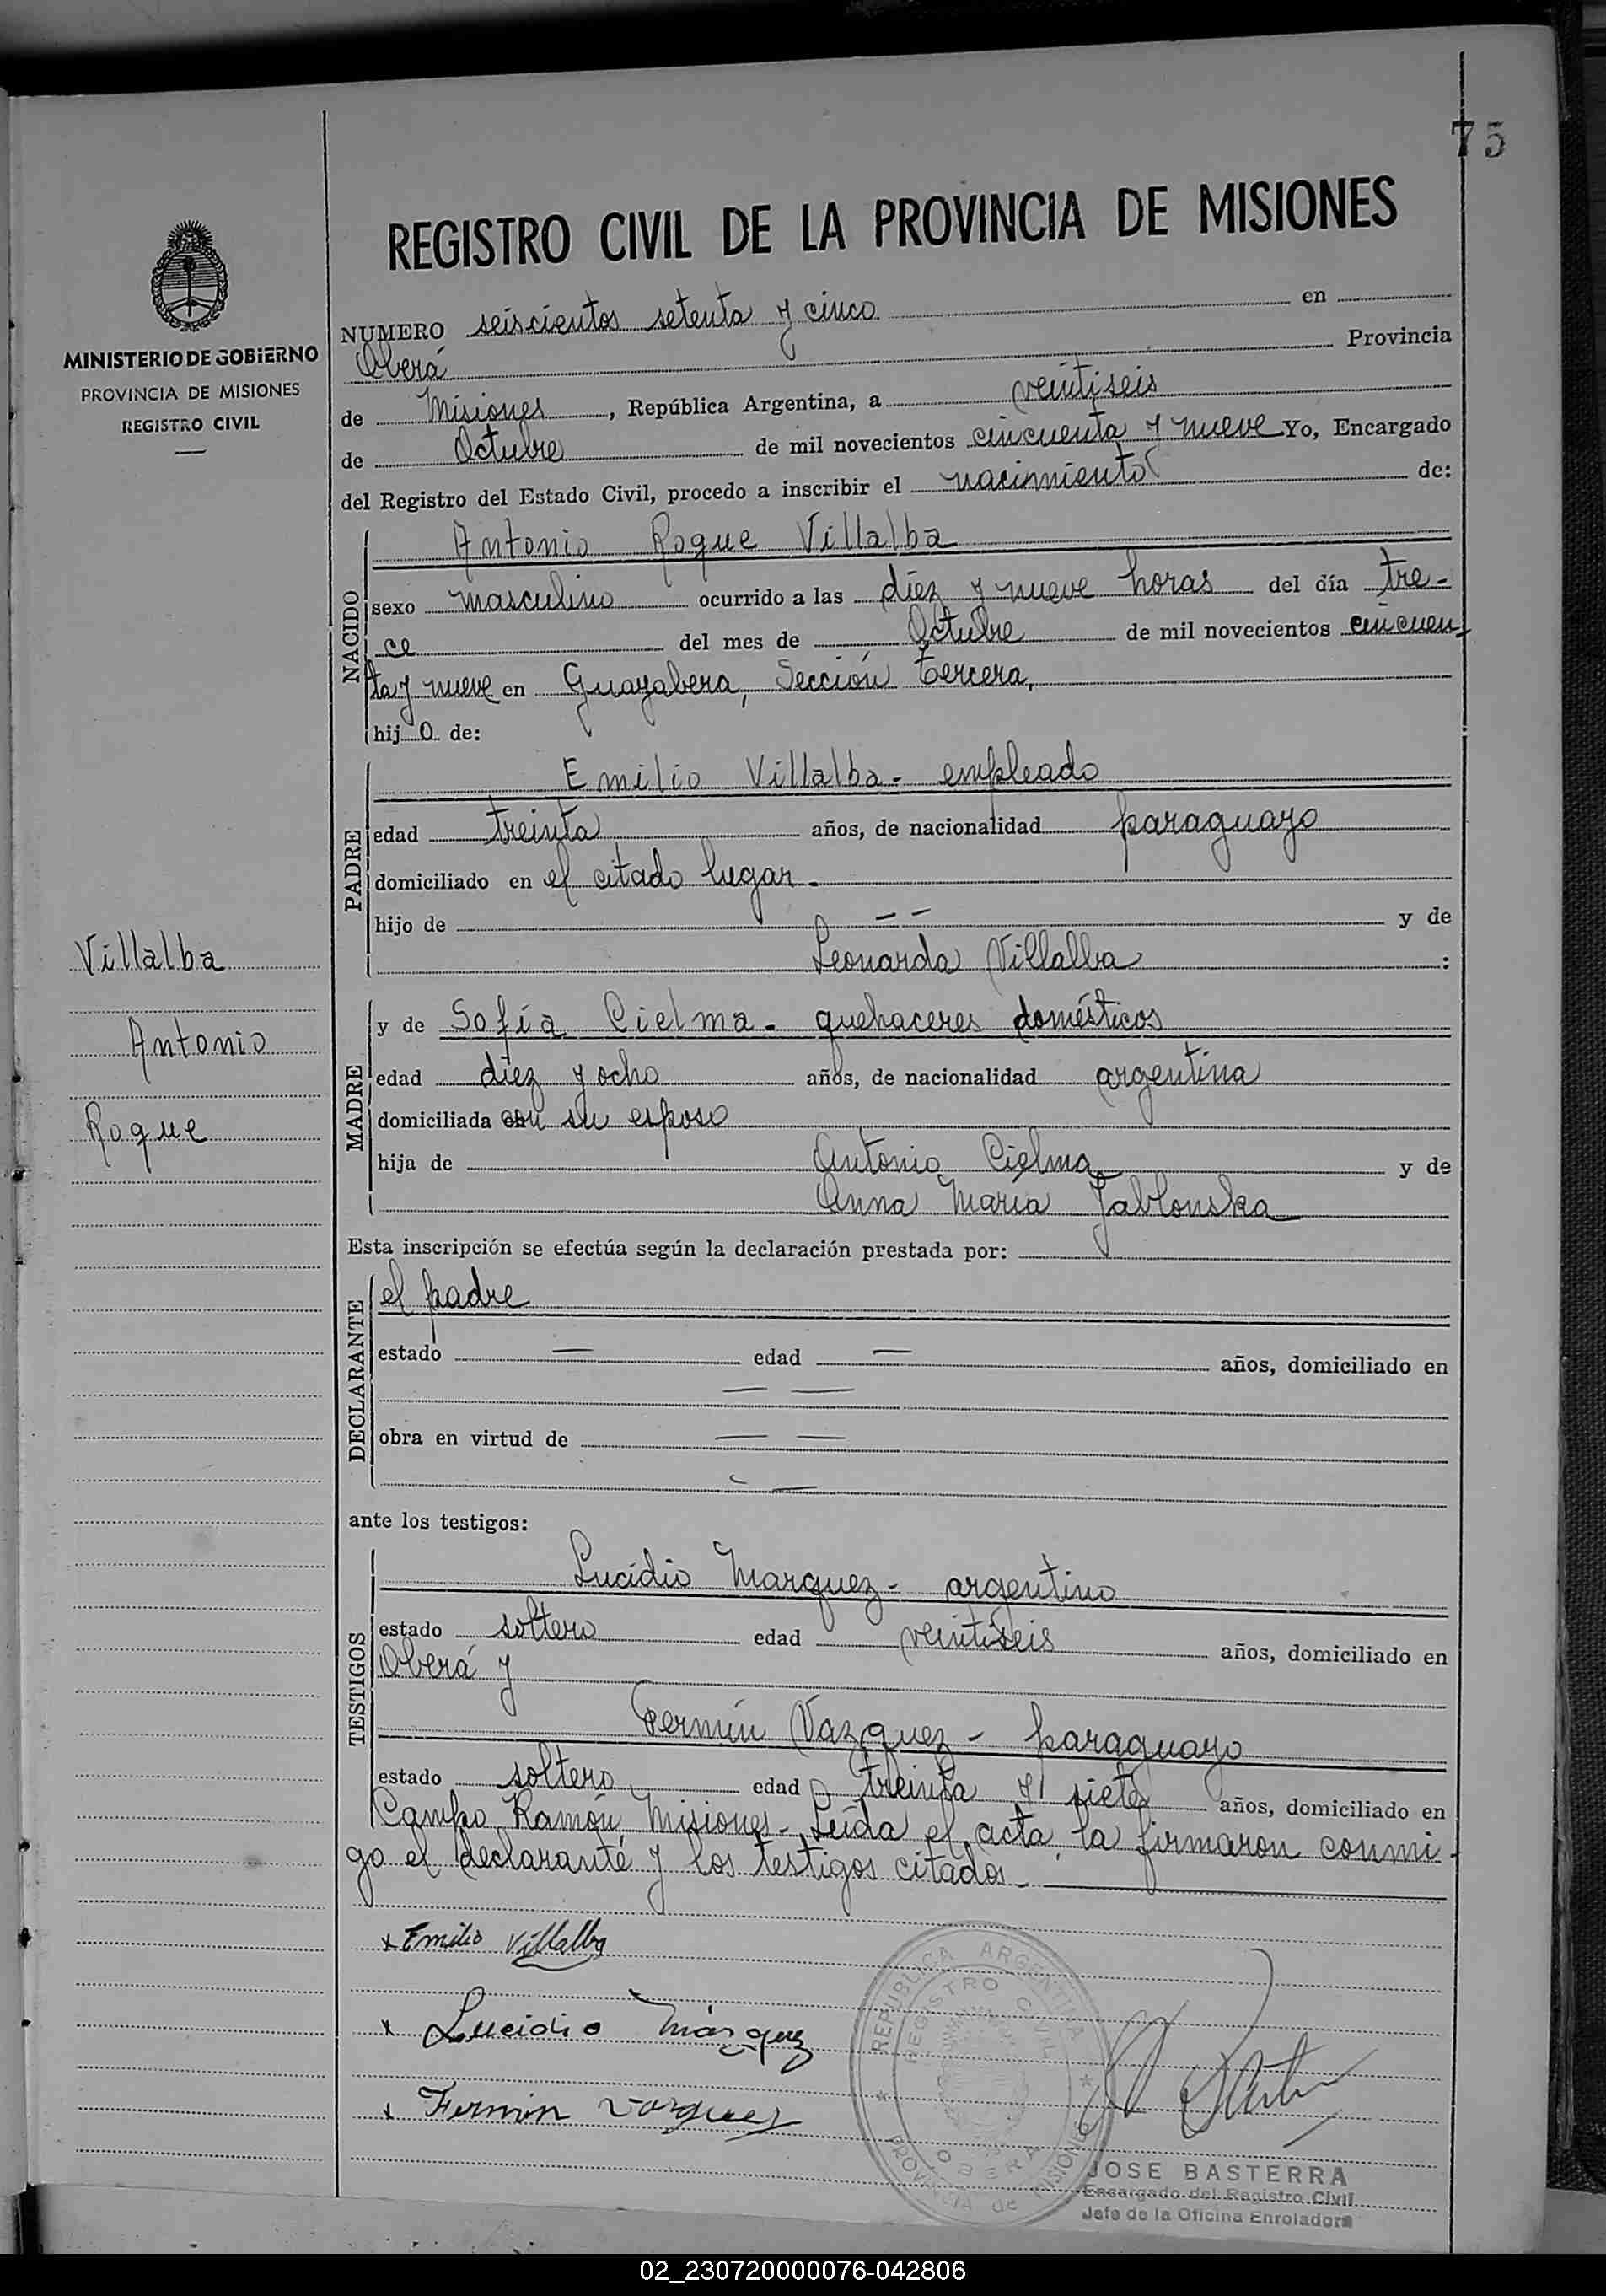 75
REGISTRO CIVIL DE LA PROVINCIA DE MISIONES
MINISTERIO DE GOBIERNO
PROVINCIA DE MISIONES
REGISTRO CIVIL
NUMERO seiscientos setenta y cinco en
Oberá Provincia
de Misiones, República Argentina, a veintiseis
de Octubre de mil novecientos cincuenta y nueve Yo, Encargado
del Registro del Estado Civil, procedo a inscribir el nacimiento de:
NACIDO
Antonio Roque Villalba
sexo masculino ocurrido a las diez y nueve horas del día tre-
ce del mes de Octubre de mil novecientos cincuen-
ta y nueve en Guayabera, Sección tercera,
hij o de:
PADRE
Emilio Villalba - empleado
edad treinta años, de nacionalidad paraguayo
domiciliado en el citado lugar -
hijo de — — y de
Leonarda Villalba :
Villalba
Antonio
Roque
MADRE
y de Sofía Cielma - quehaceres domésticos
edad diez y ocho años, de nacionalidad argentina
domiciliada con su esposo
hija de Antonio Cielma y de
Anna María Jablonska
Esta inscripción se efectúa según la declaración prestada por:
DECLARANTE
el padre
estado — edad — años, domiciliado en
— —
obra en virtud de — —
— —
ante los testigos:
TESTIGOS
Lucidio Marquez - argentino
estado soltero edad veintiseis años, domiciliado en
Oberá y
Fermín Vazquez - paraguayo
estado soltero edad treinta y siete años, domiciliado en
Campo Ramón Misiones - Leída el acta, la firmaron conmi-
go el declarante y los testigos citados -
x Emilio Villalba
x Lucidio Márquez
x Fermin Vazquez
REPUBLICA ARGENTINA
REGISTRO CIVIL
OBERA
PROVINCIA de MISIONES
JOSE BASTERRA
Encargado del Registro Civil
Jefe de la Oficina Enroladora
02_230720000076-042806